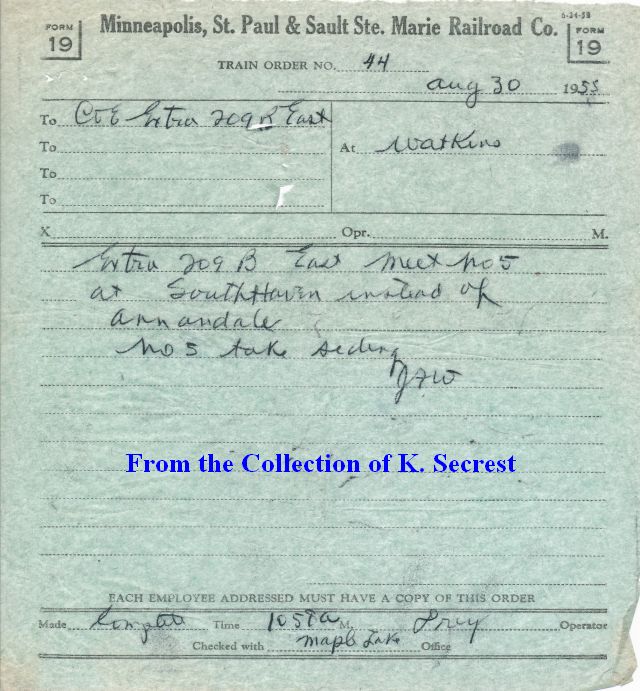 FORM 19
Minneapolis, St. Paul & Sault Ste. Marie Railroad Co.
6-24-53
FORM 19
TRAIN ORDER NO. 44
Aug 30 1955
To C&E Extra 209 B East
To
At Watkins
To
To
X Opr. M.
Extra 209 B East meet No 5
at SouthHaven instead of
Annandale
No 5 take siding
JFW
From the Collection of K. Secrest
EACH EMPLOYEE ADDRESSED MUST HAVE A COPY OF THIS ORDER
Made Complete Time 1058 A M. Operator
Checked with Maple Lake Office